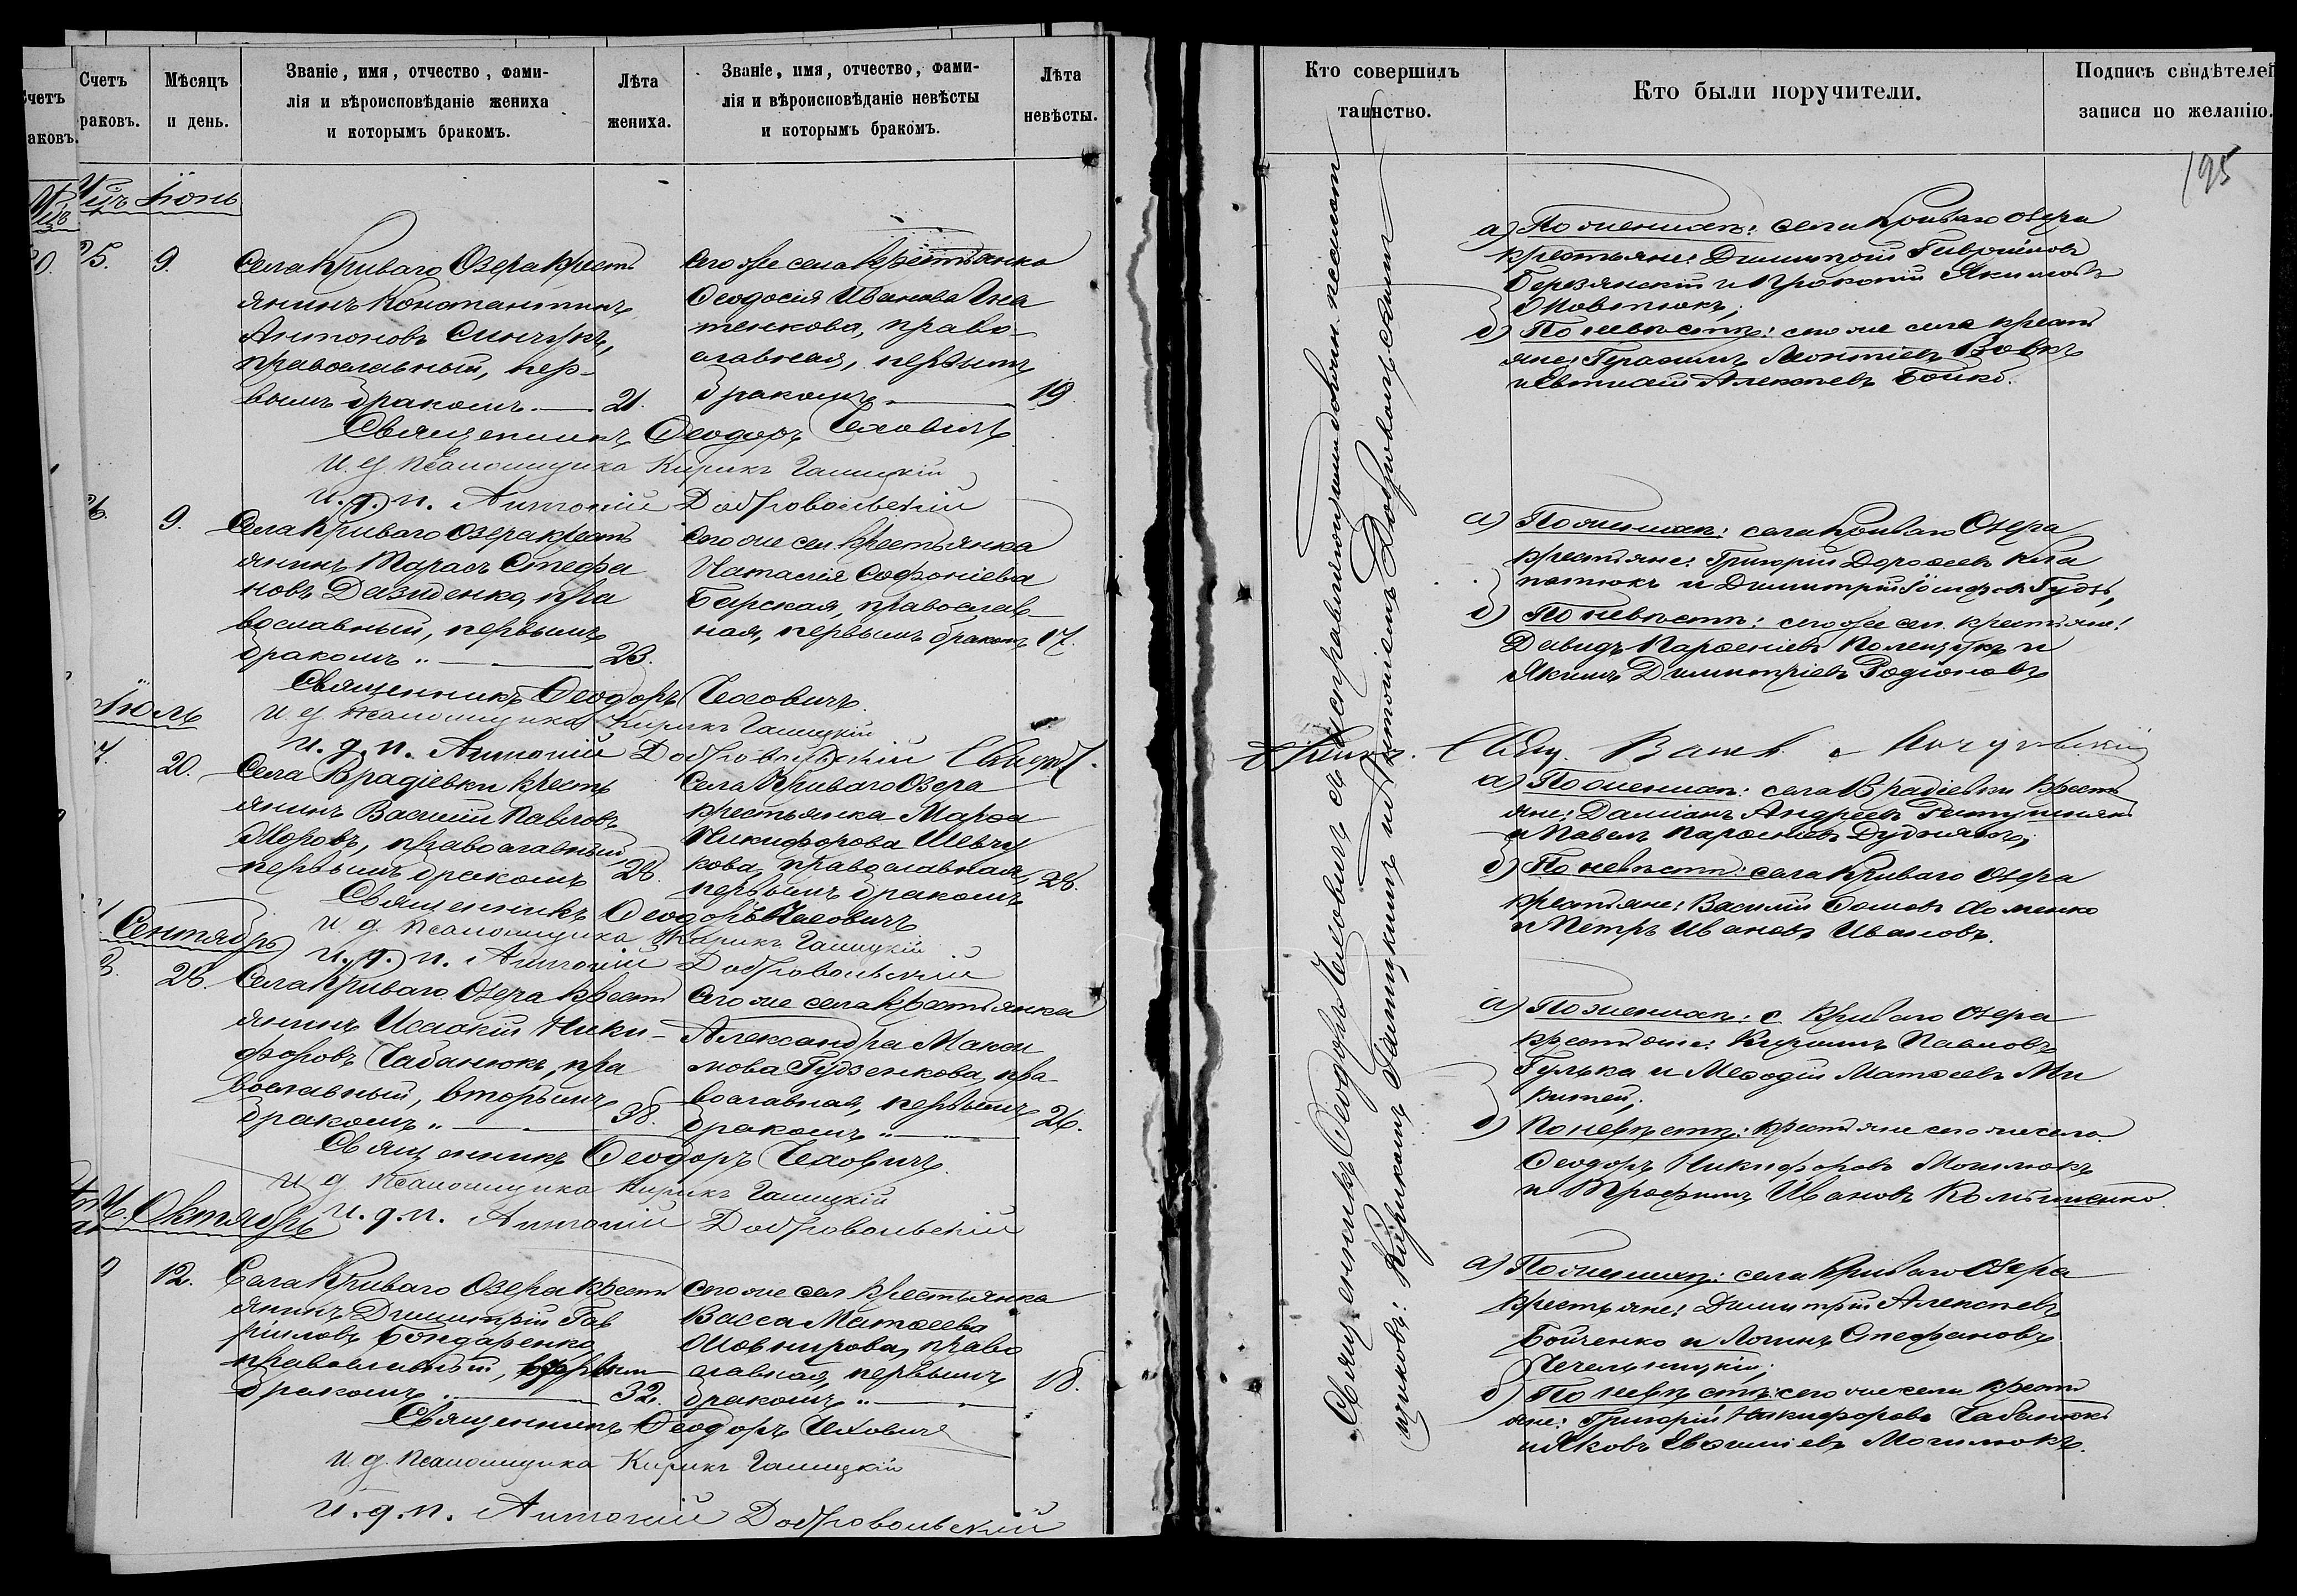 Счетъ
раковъ.
Мѣсяцъ
и день.
Званіе, имя, отчество, фами-
лія и вѣроисповѣданіе жениха
и которымъ бракомъ.
Лѣта
жениха.
Званіе, имя, отчество, фами-
лія и вѣроисповѣданіе невѣсты
и которымъ бракомъ.
Лѣта
невѣсты.
Іюнь
25.
9.
Села Криваго Озера кресть
янинъ Константинъ
Антоновъ
православный, пер-
вымъ бракомъ
21.
Того же села крестьянка
Ѳеодосія Иванова Гна
тенкова, право-
славная, первымъ
бракомъ
19
Священникъ Ѳеодоръ Чеховичъ
И. д. Псаломщика Кирикъ Галицкій
и. д. п. Антоній Добровольскій
26.
9.
Села Криваго Озера кресть
янинъ Тарасъ Стефа
новъ Давиденко, пра
вославный, первымъ
бракомъ
23.
Того же сел. крестьянка
Наталія Софоніева
Барская, православ-
ная, первымъ бракомъ
17.
Священникъ Ѳеодоръ Чеховичъ
И. д. Псаломщика Кирикъ Галицкій
и. д. п. Антоній Добровольскій
Іюль
7.
20.
Села Врадіевки кресть
янинъ Василій Павловъ
Моровъ, православный,
первымъ бракомъ
28.
Села Криваго Озера
крестьянка Марѳа
Никифорова Шевчу
кова, православная,
первымъ бракомъ
28.
Священникъ Ѳеодоръ Чеховичъ
и. д. Псаломщика Кирикъ Галицкій
и. д. п. Антоній Добровольскій
Сентябрь
28.
Села Криваго Озера кресть
янинъ Исаакій Ники-
форовъ Чабанюкъ, пра
вославный, вторымъ
бракомъ
38.
Того же села крестьянка
Александра Макси
мова Гудзенкова, пра-
вославная, первымъ
бракомъ
24.
Священникъ Ѳеодоръ Чеховичъ
и. д. Псаломщика Кирикъ Галицкій
и. д. п. Антоній Добровольскій
Октябрь
12.
Села Криваго Озера кресть
янинъ Димитрій Гав
ріиловъ Бондаренко,
православный,
бракомъ
32.
Того же сел крестьянка
Васса Матѳеева
право
славная, первымъ
бракомъ
18.
Священникъ Ѳеодоръ Чеховичъ
И. д. Псаломщика Кирикъ Галицкій
и. д. п. Антоній Добровольскій
Кто совершилъ
таинство.
Кто были поручители.
Подпись свидѣтелей
записи по желанію.
195
Священникъ Ѳеодоръ Чеховичъ съ исправляющими должн. псалом
щиковъ: Кирикомъ Галицкимъ и Антоніемъ Добровольскимъ
а) По женихѣ: села Криваго Озера
крестьяне: Димитрій Гавріиловъ
Березянскій и Прокопій Якимовъ
Мовтюкъ;
б) По невѣстѣ: того же села кресть
яне: Герасимъ Леонтіевъ Вовкъ
и Евтихій Алексѣевъ Бойко.
а) По женихѣ: села Криваго Озера
крестьяне: Григорій Дороѳеевъ
и Димитрій Іосифовъ Гудзь,
б) По невѣстѣ: того же сел. крестьяне:
Давидъ Парѳеніевъ и
Якимъ Димитріевъ Родіоновъ
а) По женихѣ: села Врадіевки кресть
яне: Даміанъ Андреевъ
и Павелъ Парѳеніевъ Дудникъ;
б) По невѣстѣ: села Криваго Озера
крестьяне: Василій Ѳомовъ Хоменко
и Петръ Ивановъ Ивановъ.
а) По женихѣ: с. Криваго Озера
крестьяне: Кириллъ Павловъ
Гулька и Меѳодій Матѳеевъ Ми
китей;
б) По невѣстѣ: крестьяне того же села
Ѳеодоръ Никифоровъ Могилюкъ
и Трофимъ Ивановъ
а) По женихѣ: села Криваго Озера
крестьяне: Димитрій Алексѣевъ
Бойченко и Логинъ Стефановъ
Чечельницкій;
б) По невѣстѣ: того же села кресть
яне: Григорій Никифоровъ Чабанюкъ
и Яковъ Евфиміевъ Могилюкъ.